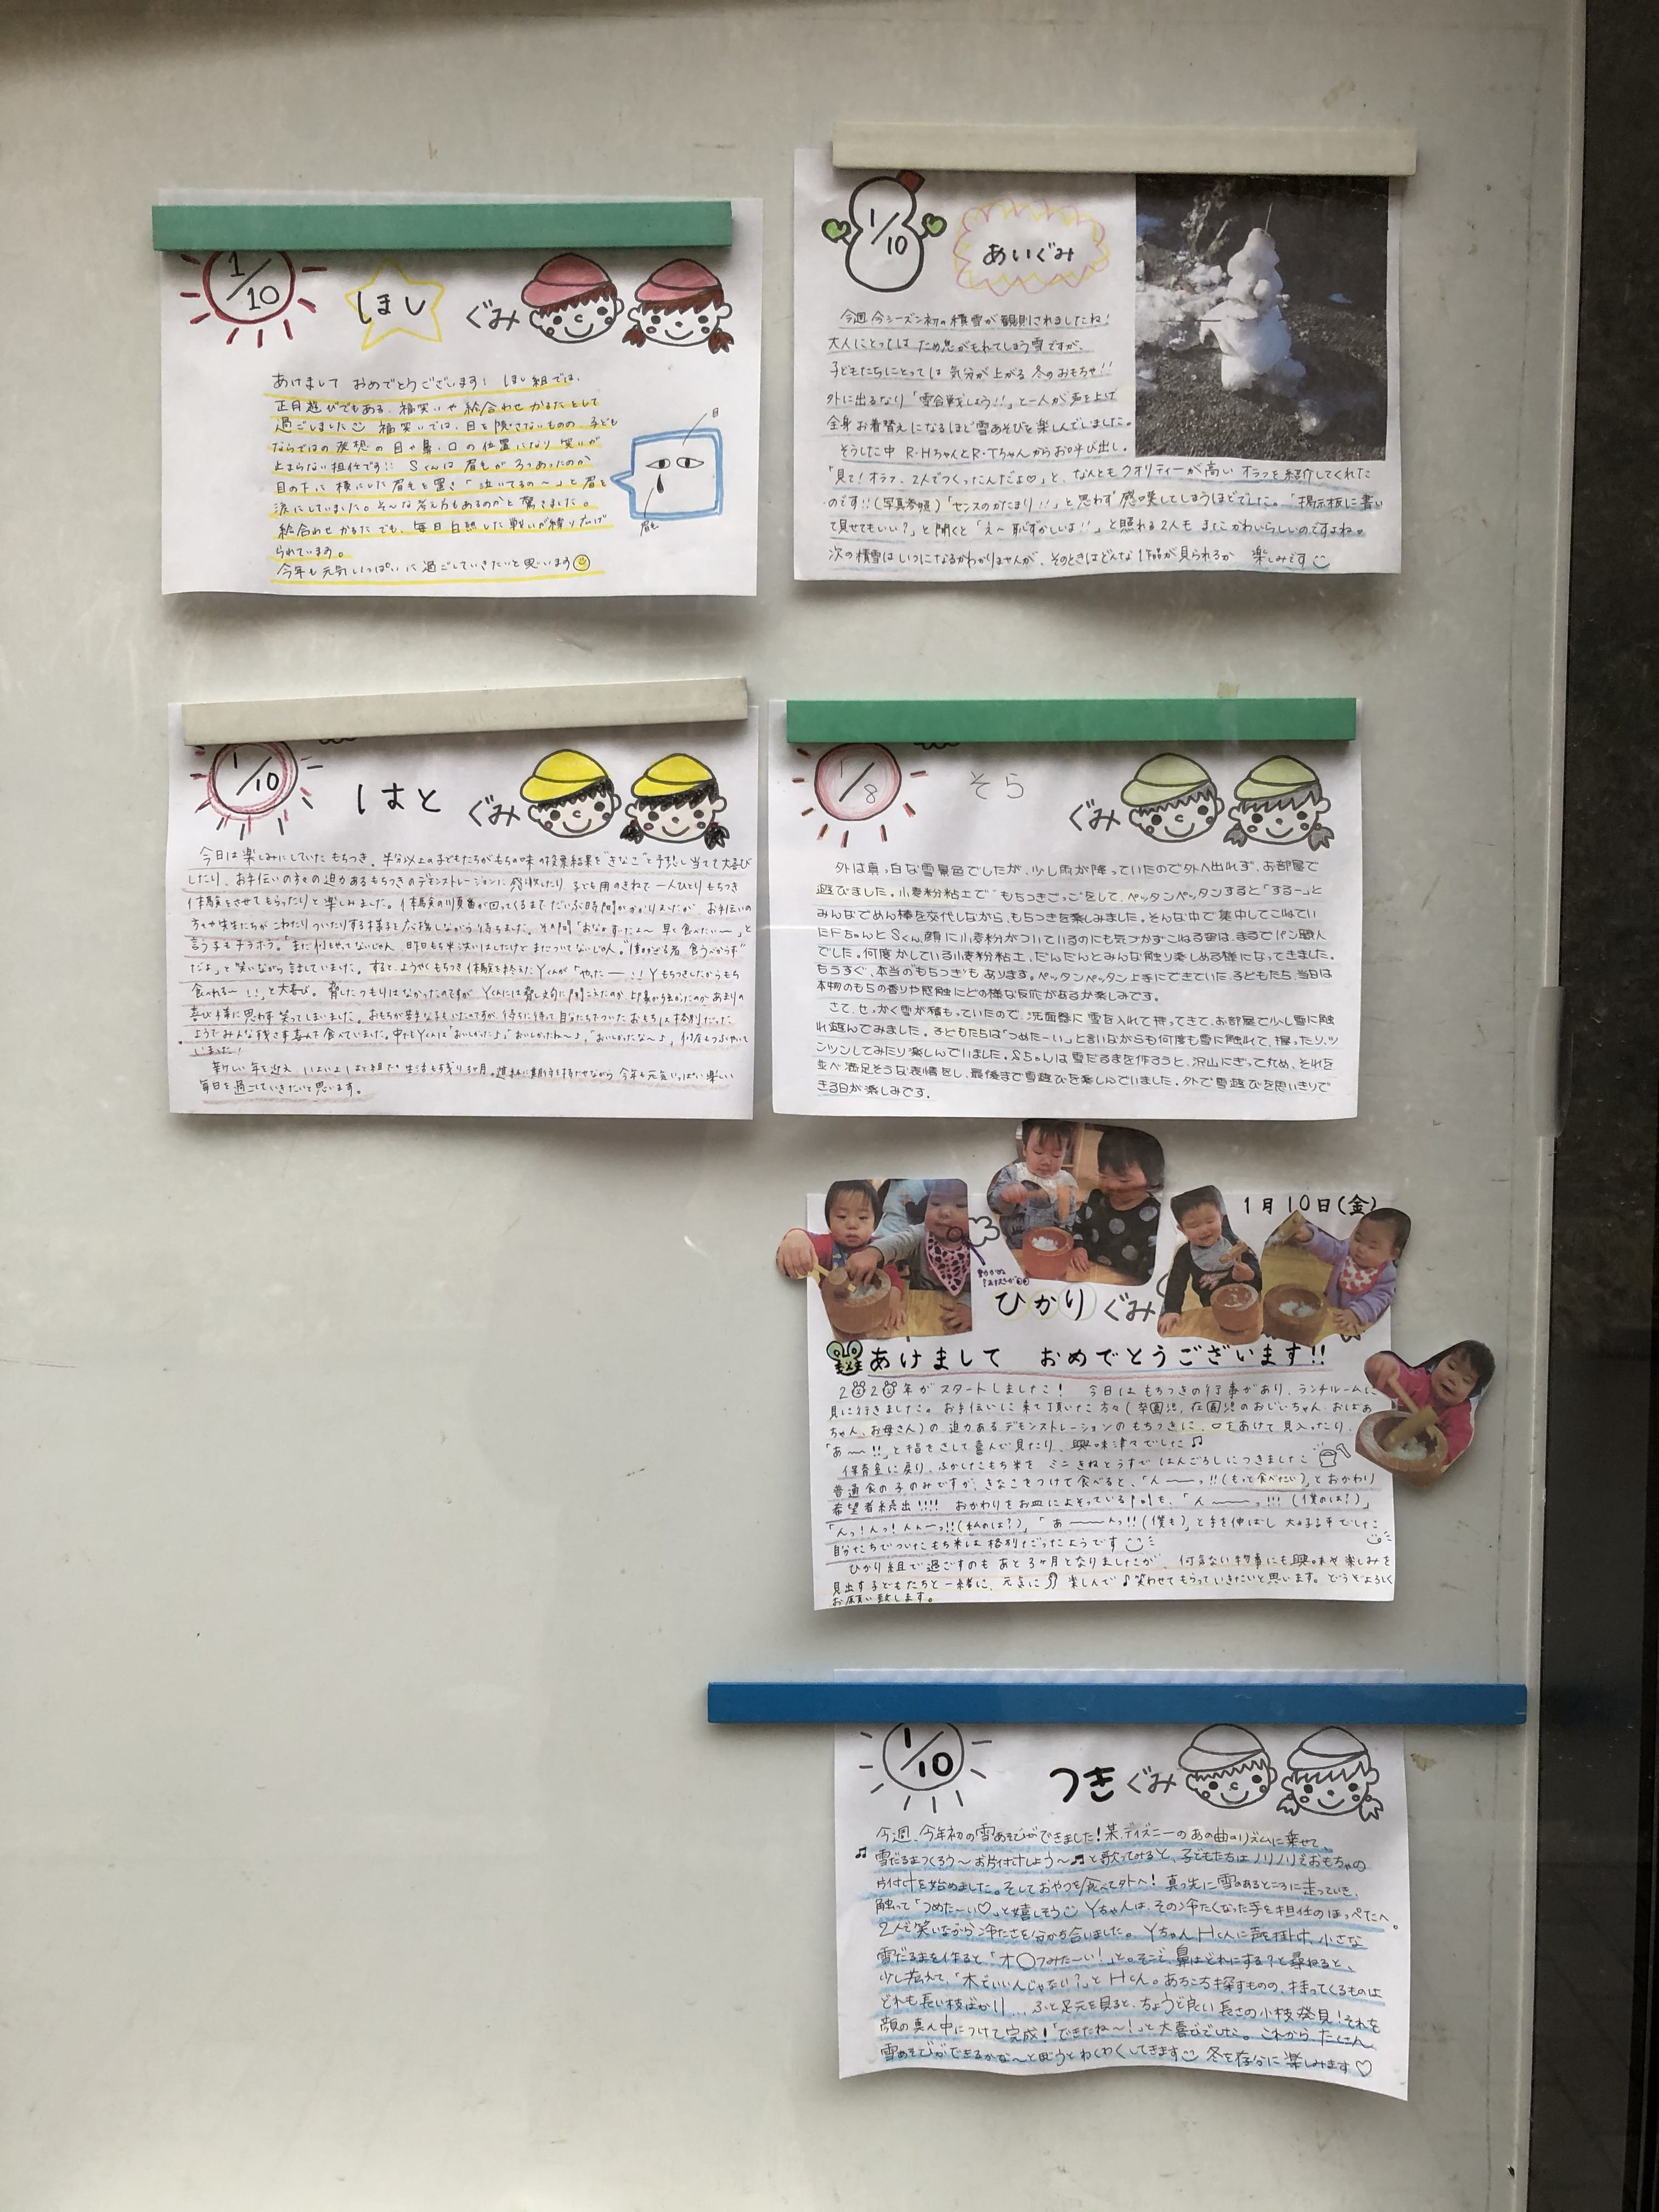 1/10
ほし ぐみ
あけまして おめでとうございます! ほし組では、
正月遊びでもある、福笑いや絵合わせかるたをして
過ごしました 福笑いでは、目を隠さないものの、子ども
ならではの発想の目や鼻・口の位置になり笑いが
止まらない担任です!! Sくんは眉毛が3つあったのか
目の下に横にした眉毛を置き「泣いてるの〜」と眉を
涙にしていました。そんな考え方もあるのかと驚きました。
絵合わせかるたでも、毎日白熱した戦いが繰り広げ
られています。
今年も元気いっぱいに過ごしていきたいと思います
目
眉毛
1/10
あいぐみ
今週今シーズン初の積雪が観測されましたね!
大人にとっては ため息がもれてしまう雪ですが、
子どもたちにとっては 気分が上がる 冬のおもちゃ!!
外に出るなり「雪合戦しよう!!」と一人が声を上げ
全身お着替えになるほど雪あそびを楽しんでいました。
そうした中 R・HちゃんとR・Tちゃんからお呼び出し。
「見て!オラフ、2人でつくったんだよ♡」と、なんともクオリティーが高いオラフを紹介してくれた
のです!!(写真参照)「センスのかたまり!!」と思わず感嘆してしまうほどでした。「掲示板に書い
て見せてもいい?」と聞くと「え〜恥ずかしいよ!!」と照れる2人もまたかわいらしいのですよね。
次の積雪はいつになるかわかりませんが、そのときはどんな作品が見られるか 楽しみです
1/10
はと ぐみ
今日は楽しみにしていたもちつき。半分以上の子どもたちがもちの味の投票結果を"きなこ"と予想し当てて大喜び
したり、お手伝いの方々の迫力あるもちつきのデモンストレーションに感激したり、子ども用のきねで一人ひとりもちつき
体験をさせてもらったりと楽しみました。体験の順番が回ってくるまでだいぶ時間がかかりましたが、お手伝いの
方々や先生たちがこねたりついたりする様子を応援しながら待ちました。その間「おなかすいたよ〜 早く食べたい〜」と
言う子もチラホラ。「まだ何もやってないじゃん、昨日もち米洗いはしたけどまだついてないじゃん。"働かざる者、食うべからず"
だよ」と笑いながら話していました。すると、ようやくもちつき体験を終えたYくんが「やったー!! Yもちつきしたからもち
食べれる〜!!」と大喜び。脅したつもりはなかったのですが、Yくんには脅し文句に聞こえたのか あまりの
喜び様に思わず笑ってしまいました。おもちが苦手な子もいたのですが、待ちに待って自分たちでついたおもちは格別だった
ようでみんな残さず喜んで食べていました。中でもYくんは"おいしかったよ""おいしかったね〜""おいしかったな〜"何度もつぶやいて
いました!
新しい年を迎え、いよいよはと組での生活も残り3ヶ月。進級に期待を持たせながら 今年も元気いっぱい楽しい
毎日を過ごしていきたいと思います。
1/8
そら ぐみ
外は真っ白な雪景色でしたが、少し雨が降っていたので外へ出れず、お部屋で
遊びました。小麦粉粘土で"もちつきごっこ"をして、ペッタンペッタンすると「する〜」と
みんなでめん棒を交代しながら、もちつきを楽しみました。そんな中で集中してこねてい
たFちゃんとSくん、顔に小麦粉がついているのにも気づかずこねる姿は、まるでパン職人
でした。何度かしている小麦粉粘土、だんだんとみんな触り楽しめる様になってきました。
もうすぐ、本当の"もちつき"もあります。ペッタンペッタン上手にできていた子どもたち、当日は
本物のもちの香りや感触にどの様な反応があるか楽しみです。
さて、せっかく雪が積もっていたので、洗面器に雪を入れて持ってきて、お部屋で少し雪に触
れ遊んでみました。子どもたちは「つめたーい」と言いながらも何度も雪に触れて、握ったり、ツ
ンツンしてみたり楽しんでいました。Sちゃんは雪だるまを作ろうと、沢山にぎって丸め、それを
並べ満足そうな表情をし、最後まで雪遊びを楽しんでいました。外で雪遊びを思いきりで
きる日が楽しみです。
1月10日(金)
ひかり ぐみ
あけまして おめでとうございます!!
2020年がスタートしました! 今日はもちつきの行事があり、ランチルームに
見に行きました。お手伝いに来て頂いた方々(卒園児、在園児のおじいちゃん、おばあ
ちゃん、お母さん)の迫力あるデモンストレーションのもちつきに、口をあけて見入ったり、
「あ〜〜!!」と指をさして喜んで見たり、興味津々でした♫
保育室に戻り、ふかしたもち米をミニきねとうすではんごろしにつきました
普通食の子のみですが、きなこをつけて食べると、「ん〜〜っ!!(もっと食べたい)」とおかわり
希望者続出!!!! おかわりをお皿によそっている間も、「ん〜〜っ!!!(僕のは?)」
「んっ!んっ!んん〜っ!!(私のは?)」「あ〜〜んっ!!(僕も)」と手を伸ばし大好評でした
自分たちでついたもち米は格別だったようです
ひかり組で過ごすのもあと3ヶ月となりましたが、何気ない物事にも興味や楽しみを
見出す子どもたちと一緒に、元気に 楽しんで♪笑わせてもらっていきたいと思います。どうぞよろしく
お願い致します。
1/10
つき ぐみ
今週、今年初の雪あそびができました!某ディズニーのあの曲のリズムに乗せて、
♫雪だるまつくろう〜お片付けしよう〜♫と歌ってみると、子どもたちはノリノリでおもちゃの
片付けを始めました。そしておやつを食べて外へ!真っ先に雪のあるところに走っていき、
触って「つめた〜い♡」と嬉しそう Yちゃんは、その冷たくなった手を担任のほっぺたへ。
2人で笑いながら冷たさを分かち合いました。Yちゃん、Hくんに声を掛け、小さな
雪だるまを作ると、「オ〇フみた〜い!」と。そこで、鼻はどれにする?と尋ねると、
少し考えて、「木でいいんじゃない?」とHくん。あちこち探すものの、持ってくるものは
どれも長い枝ばかり…。ふと足元を見ると、ちょうど良い長さの小枝発見!それを
顔の真ん中につけて完成!「できたね〜!」と大喜びでした。これから、たくさん
雪あそびができるかな〜と思うとわくわくしてきます 冬を存分に楽しみます♡